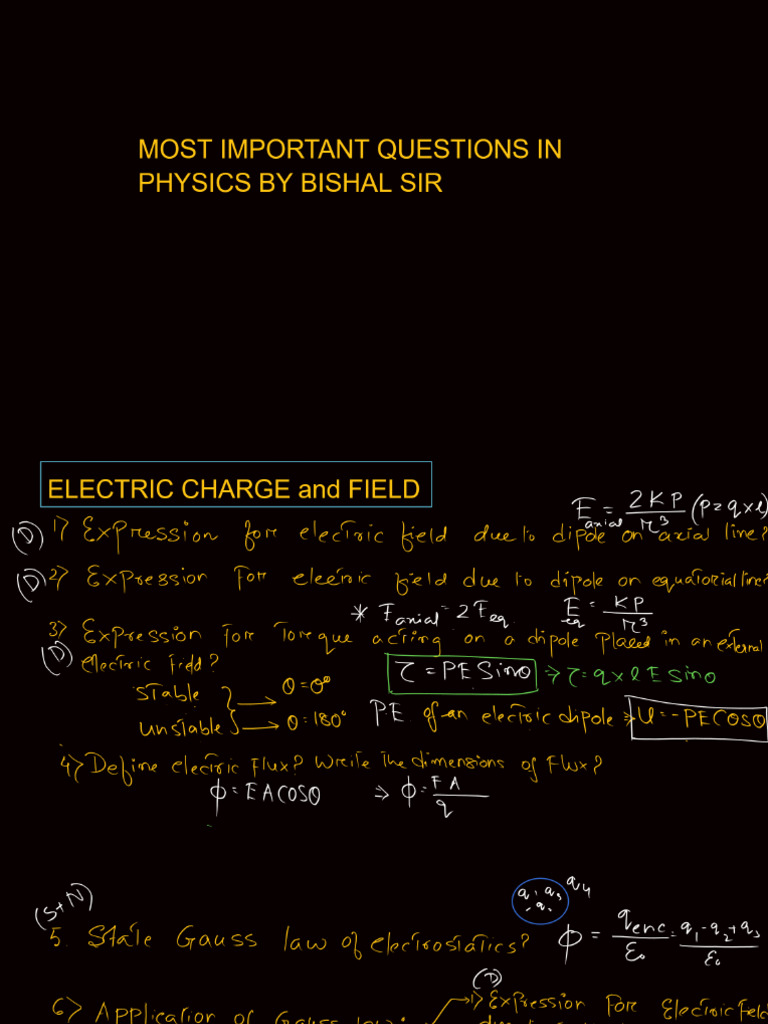 MOST IMPORTANT QUESTIONS IN
PHYSICS BY BISHAL SIR
ELECTRIC CHARGE and FIELD
E axial = 2KP/r³ (p=q×l)
(D) 1) Expression for electric field due to dipole on axial line?
(D) 2) Expression For electric field due to dipole on equatorial line?
* Faxial = 2Feq E eq = KP/r³
3) Expression For Torque acting on a dipole placed in an external
(D) electric field?
τ = PE Sinθ → τ = q×l E Sinθ
Stable → θ=0°
Unstable → θ=180°
P.E of an electric dipole ⇒ U = -PE COSθ
4) Define electric Flux? Write The dimensions of Flux?
ϕ = EACOSθ ⇒ ϕ = FA/q
(S+N)
q₁ q₃ -q₂ q₄
5. State Gauss law of electrostatics? ϕ = qenc/ε₀ = q₁-q₂+q₃/ε₀
(D)
6) Application of Gauss law: → 1) Expression For Electric Field